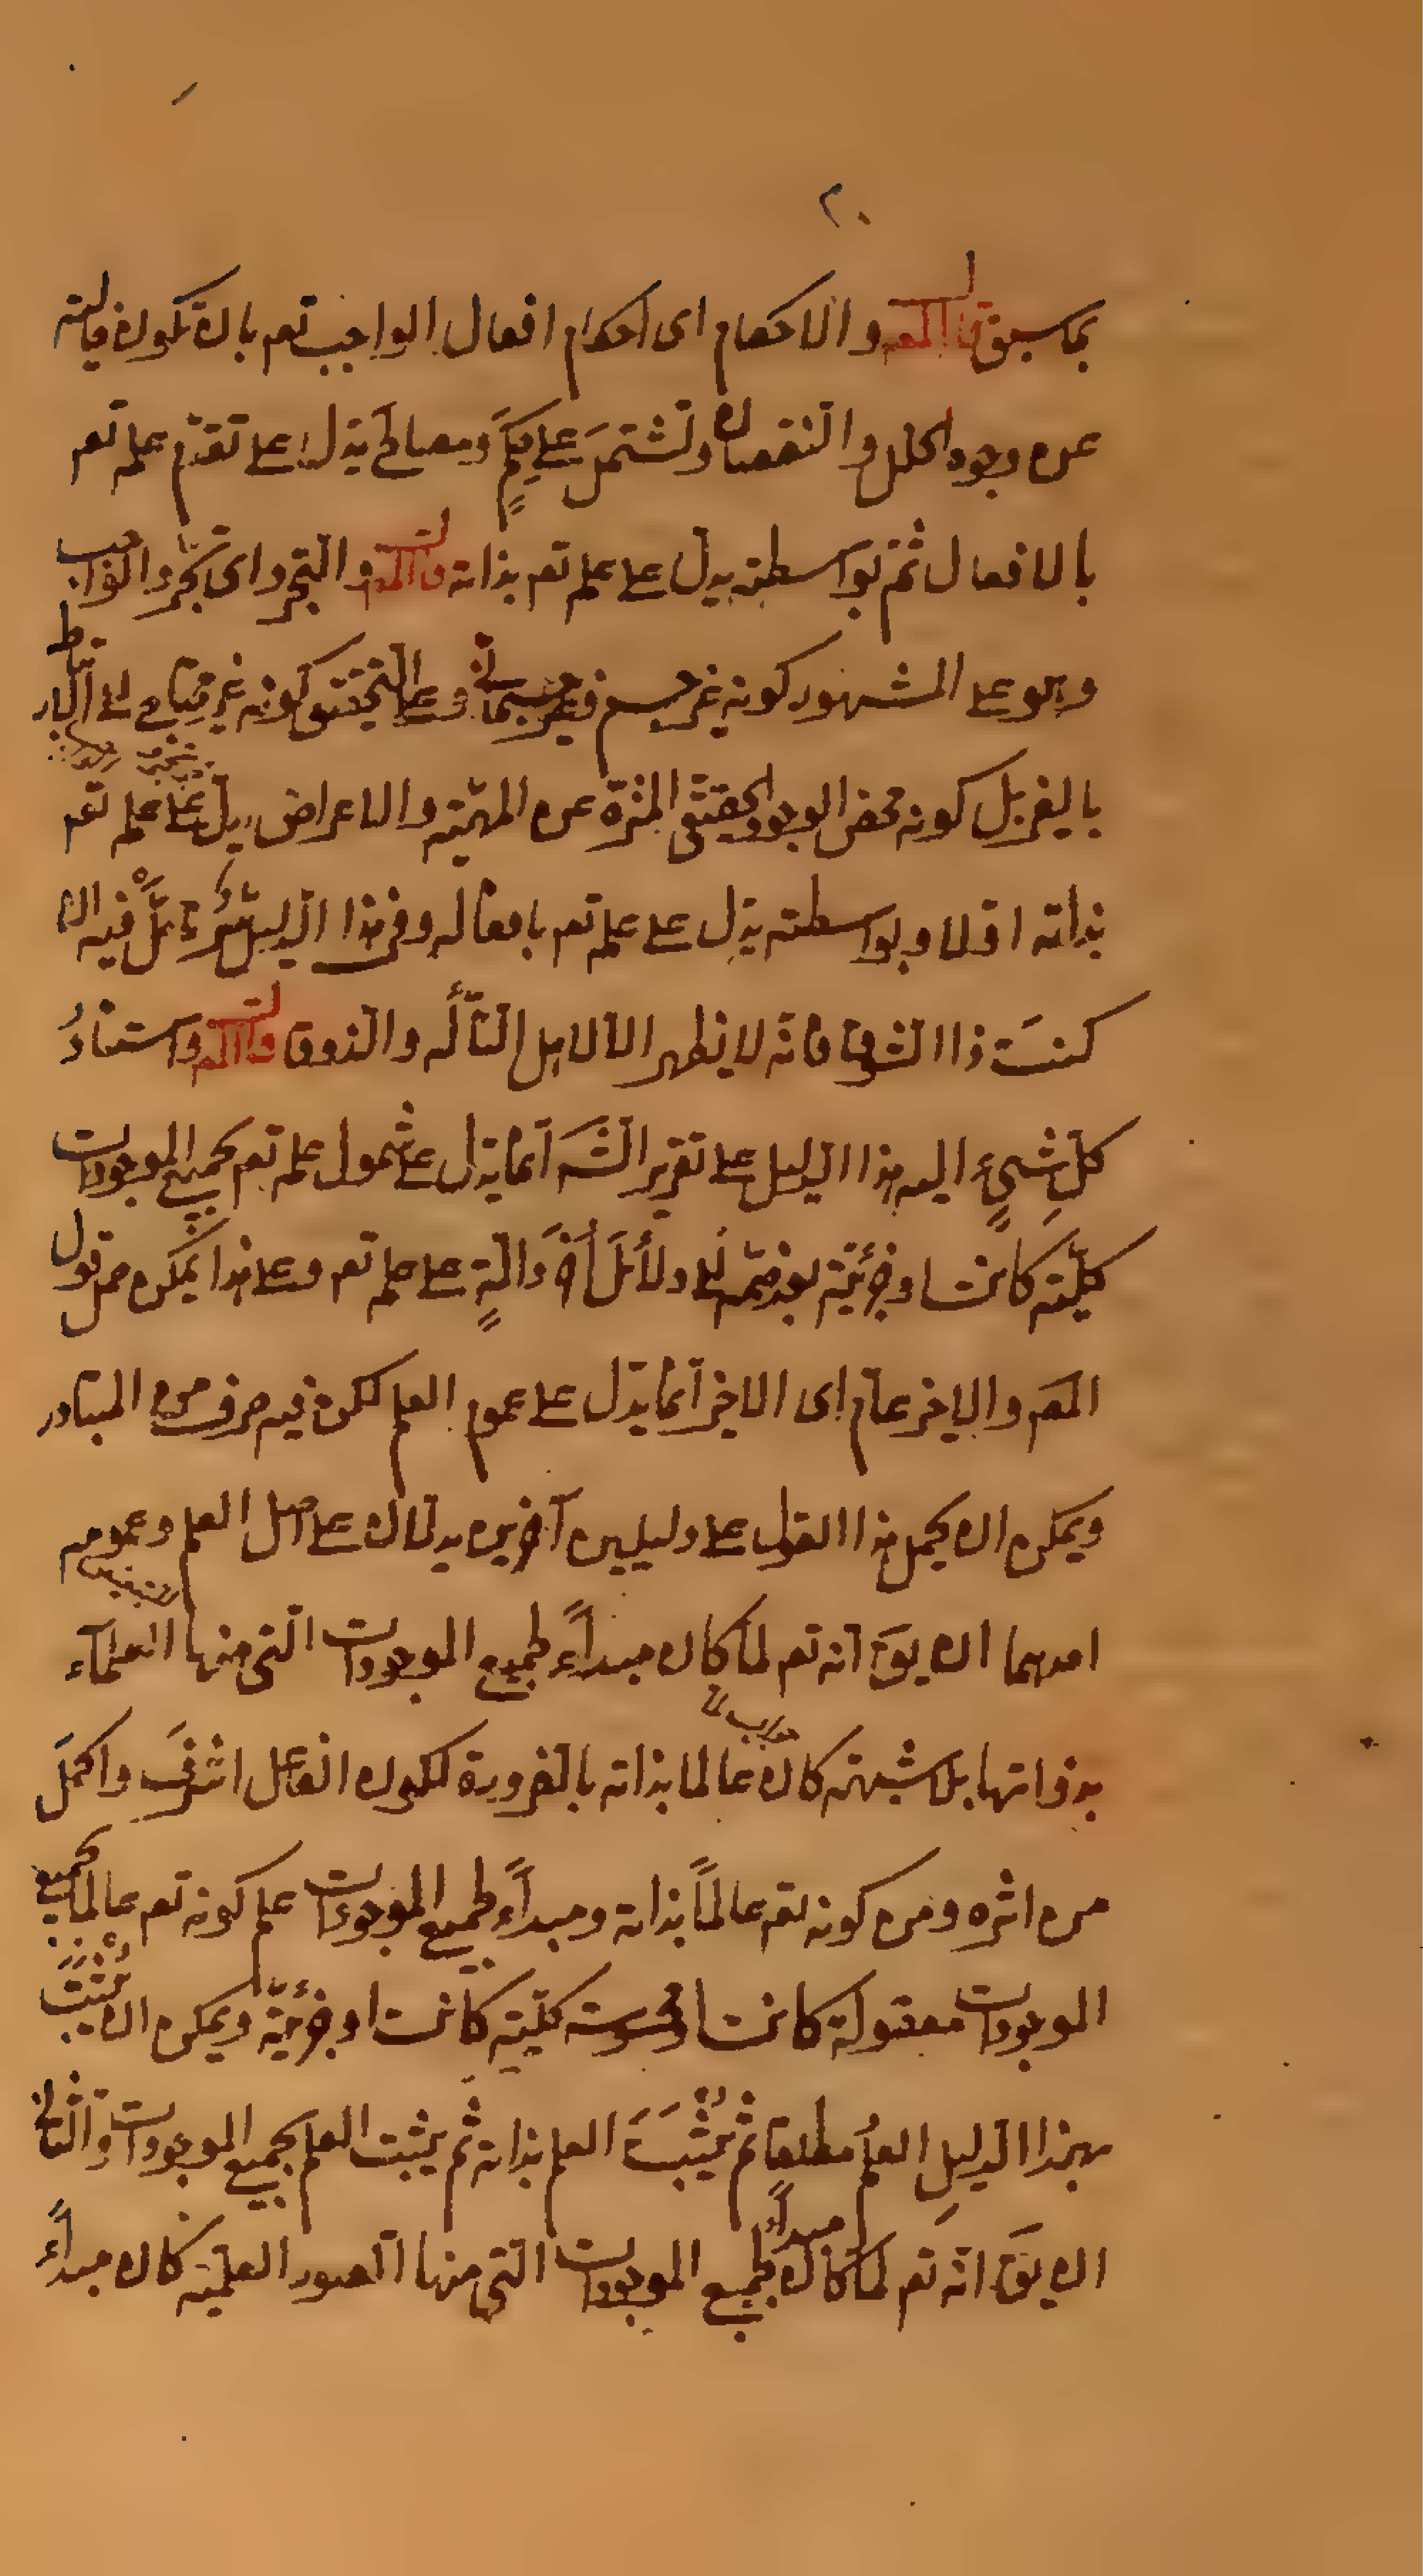 ٢٠
بما سبق قال المصـ والاحكام اى احكام افعال الواجب تعـ بان تكون خالية
عن وجوه الخلل والنقصان وتشتملَ على حِكَمٍ ومصالح يدل على تقدّم علمه تعـ
بالافعال ثم بواسطته يدل على علمه تعـ بذاته قال المصـ والتجرد اى تجرّد الواجب
وهو على المشهور كونه غير جسم وغير جسمانى وعلى التحقيق كونه غير محتاج الى ارتباط
بالغير بل كونه محض الوجود الحقيقى المنزّه عن المهيّة والاعراض يدل على علمه تعـ
بذاته اوّلا وبواسطته يدل على علمه تعـ بافعاله وفى هذا الدليل سرٌّ تأمّلْ فيه ان
كنتَ ذا الشوق فانّه لا يظهر الّا لاهل التألّه والذوق قال المصـ واستنادُ
كلِّ شىءٍ اليه هذا الدليل على تقرير الشـ انّما يدل على شمول علمه تعـ بجميع الموجودات
كلّيّة كانت او جزئيّة بعد ضمّه الى دلائلَ أُخَر دالّةٍ على علمه تعـ وعلى هذا يمكن حمل قول
المصـ والاخير عام اى الاخير انّما يدل على عموم العلم لكن فيه صرف عن المتبادر
ويمكن ان يحمل هذا القول على دليلين آخرين يدلان على اصل العلم وعمومه
احدهما ان يقـ انّه تعـ لمّا كان مبدأً لجميع الموجودات التى منها العلماء
بذواتها بلا شبهة كان عالما بذاته بالضرورة لكون الفاعل اشرفَ واكملَ
من اثره ومن كونه تعـ عالماً بذاته ومبدأً لجميع الموجودات علم كونه تعـ عالماً بجميع
الموجودات معقولة كانت او محسوسة كلّيّة كانت او جزئيّة ويمكن ان يثبت
بهذا الدليلِ العلمُ مطلقا ثم يُثبَتَ العلم بذاته ثم يثبت العلم بجميع الموجودات والثانى
ان يقـ انّه تعـ لمّا كان مبدأً لجميع الموجودات التى منها الصور العلميّة كان مبدأً